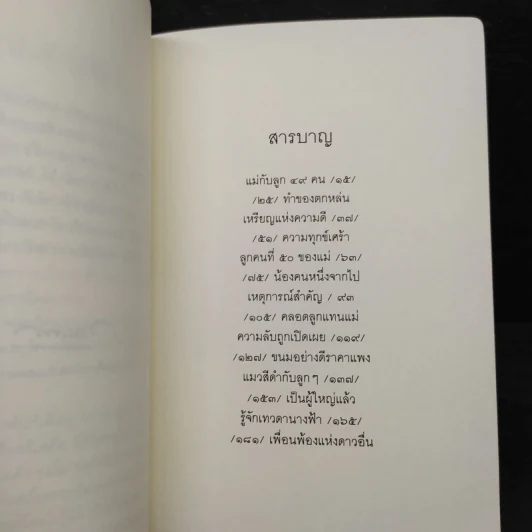 สารบาญ
แม่กับลูก ๔๙ คน /๑๕/
/๒๕/ ทำของตกหล่น
เหรียญแห่งความดี /๓๗/
/๕๑/ ความทุกข์เศร้า
ลูกคนที่ ๕๐ ของแม่ /๖๓/
/๗๕/ น้องคนหนึ่งจากไป
เหตุการณ์สำคัญ / ๙๓
/๑๐๕/ คลอดลูกแทนแม่
ความลับถูกเปิดเผย /๑๑๙/
/๑๒๗/ ขนมอย่างดีราคาแพง
แมวสีดำกับลูกๆ /๑๓๗/
/๑๕๓/ เป็นผู้ใหญ่แล้ว
รู้จักเทวดานางฟ้า /๑๖๕/
/๑๘๑/ เพื่อนพ้องแห่งดาวอื่น